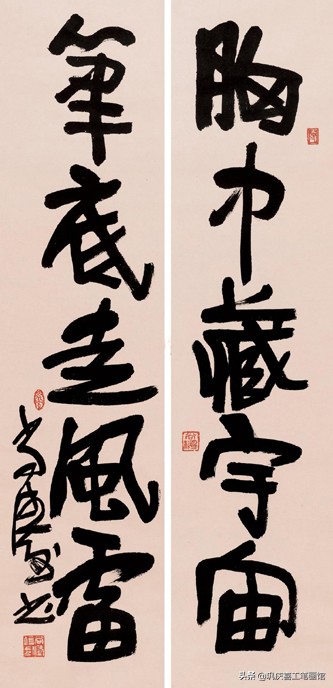 胸中藏宇宙
筆底走風雷
头条 @巩庆喜工笔画馆